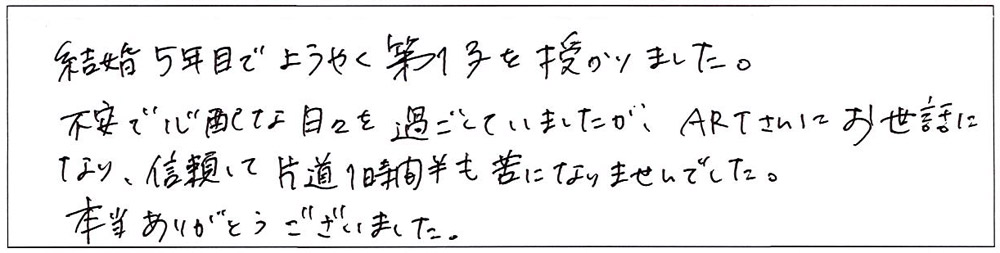 結婚5年目でようやく第1子を授かりました。
不安で心配な日々を過ごしていましたが、ARTさんにお世話に
なり、信頼して片道1時間半も苦になりませんでした。
本当ありがとうございました。